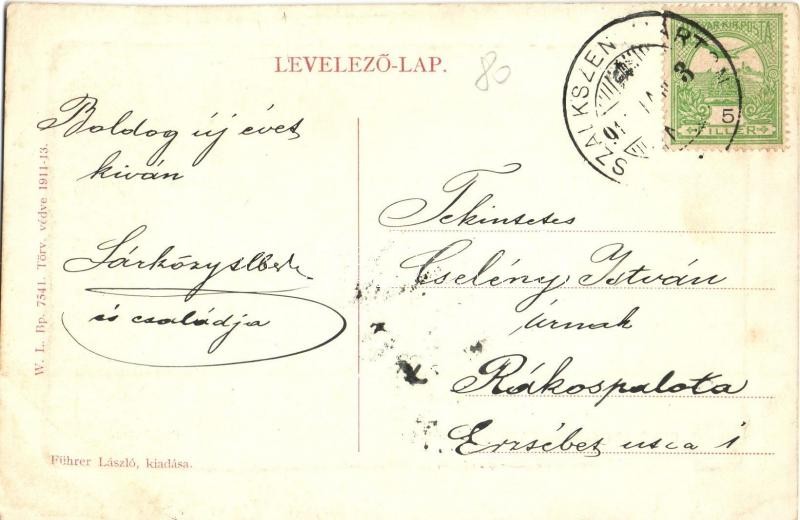 LEVELEZŐ-LAP.
80
MAGYAR KIR. POSTA
5
FILLÉR
Boldog új évet
kiván
Sárközy
és családja
Tekintetes
Cselény István
úrnak
Rákospalota
Erzsébet utca 1
W. L. Bp. 7541. Törv. védve 1911-13.
Führer László, kiadása.